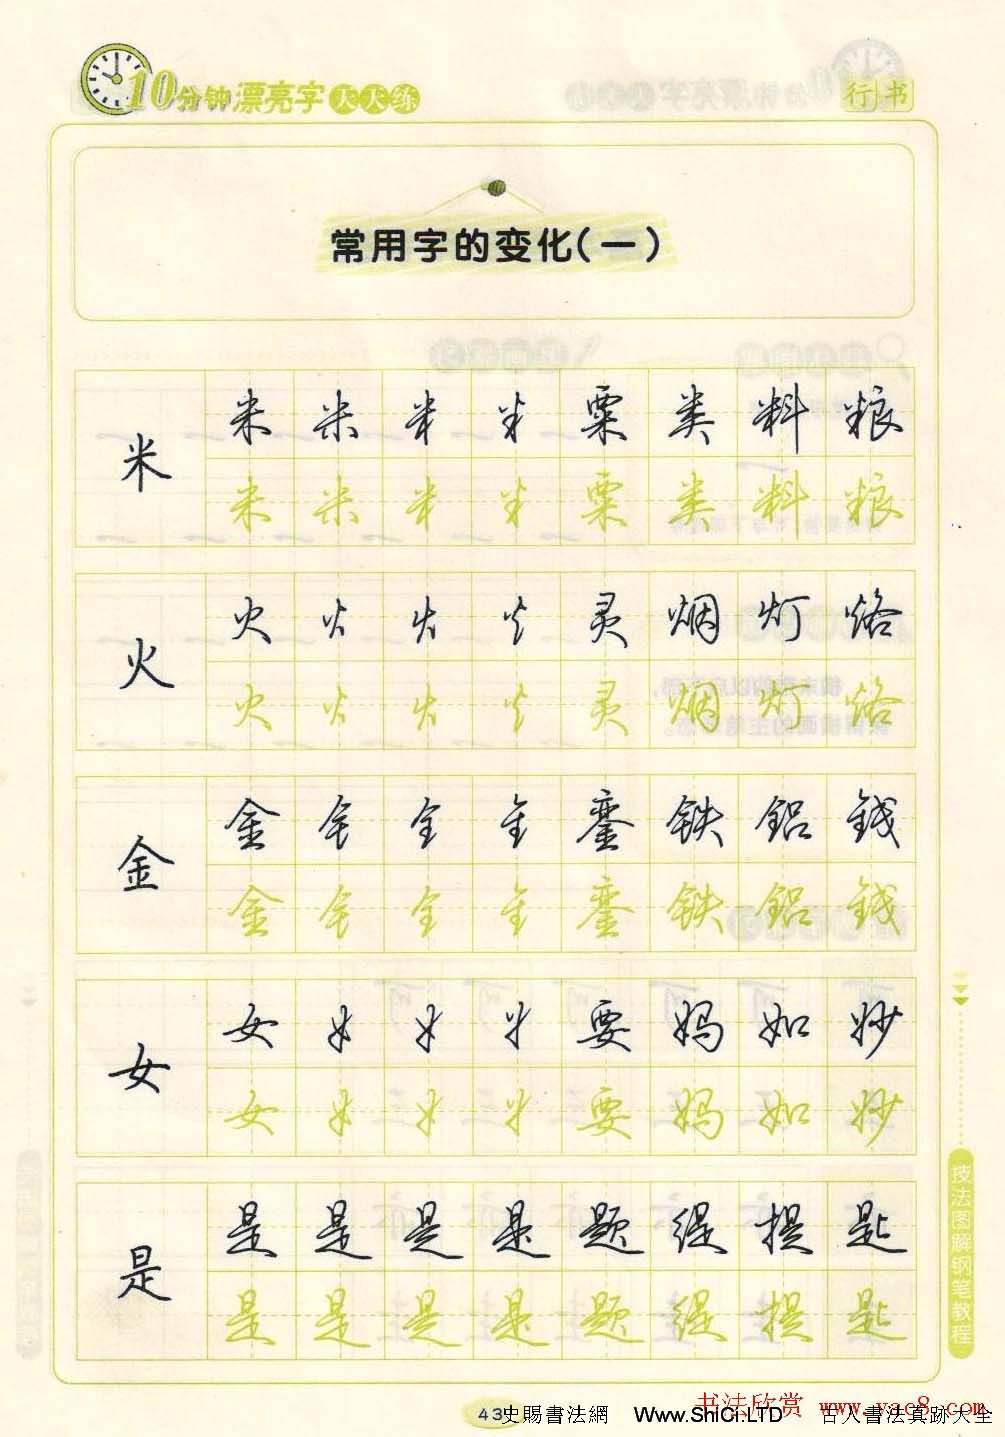 10分钟漂亮字天天练
行书
常用字的变化(一)
米 米 米 米 米 粟 类 料 粮
米 米 米 米 粟 类 料 粮
火 火 火 火 火 灵 烟 灯 烙
火 火 火 火 灵 烟 灯 烙
金 金 金 金 金 銮 铁 铝 钱
金 金 金 金 銮 铁 铝 钱
女 女 女 女 女 要 妈 如 妙
女 女 女 女 要 妈 如 妙
是 是 是 是 是 题 缇 提 匙
是 是 是 是 题 缇 提 匙
技法图解钢笔教程
43
史賜書法網 Www.ShiCi.LTD 古人書法真跡大全
书法欣赏 www.yac8.com